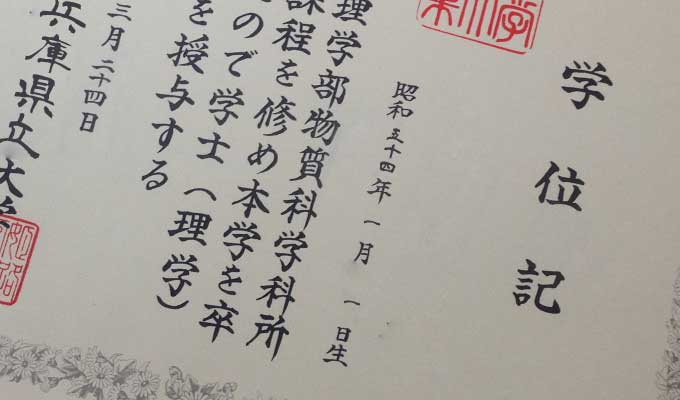 学位記
昭和五十四年一月一日生
理学部物質科学科所
課程を修め本学を卒
ので学士(理学)
を授与する
三月二十四日
兵庫県立大